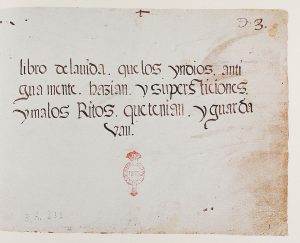 D. 3.
libro de la vida. que los yndios. anti
gua mente. hazian. y supersticiones
y malos Ritos. que tenian. y guarda
van.